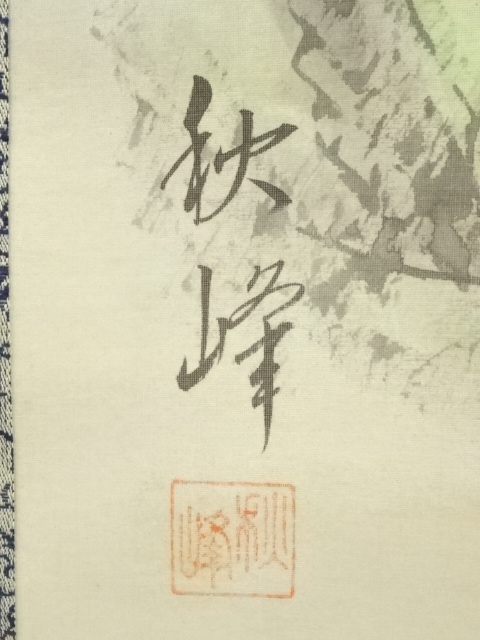 秋峰
秋峰